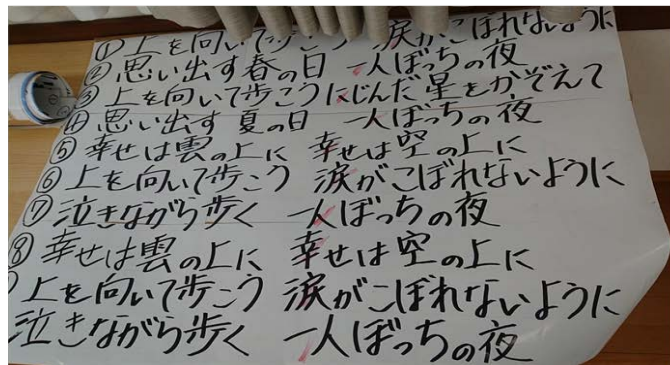 ① 上を向いて歩こう 涙がこぼれないように
② 思い出す春の日 一人ぼっちの夜
③ 上を向いて歩こう にじんだ星をかぞえて
④ 思い出す夏の日 一人ぼっちの夜
⑤ 幸せは雲の上に 幸せは空の上に
⑥ 上を向いて歩こう 涙がこぼれないように
⑦ 泣きながら歩く 一人ぼっちの夜
⑧ 幸せは雲の上に 幸せは空の上に
上を向いて歩こう 涙がこぼれないように
泣きながら歩く 一人ぼっちの夜